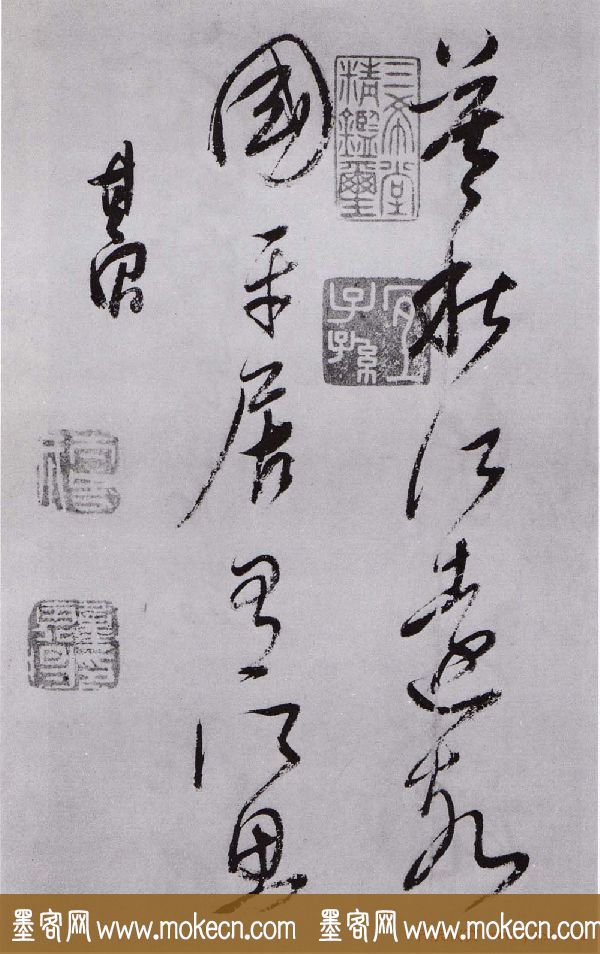 寞秋江遠故
國平居有所思
其昌
三希堂精鑑璽
宜子孫
墨客网 www.mokecn.com 墨客网 www.mokecn.com